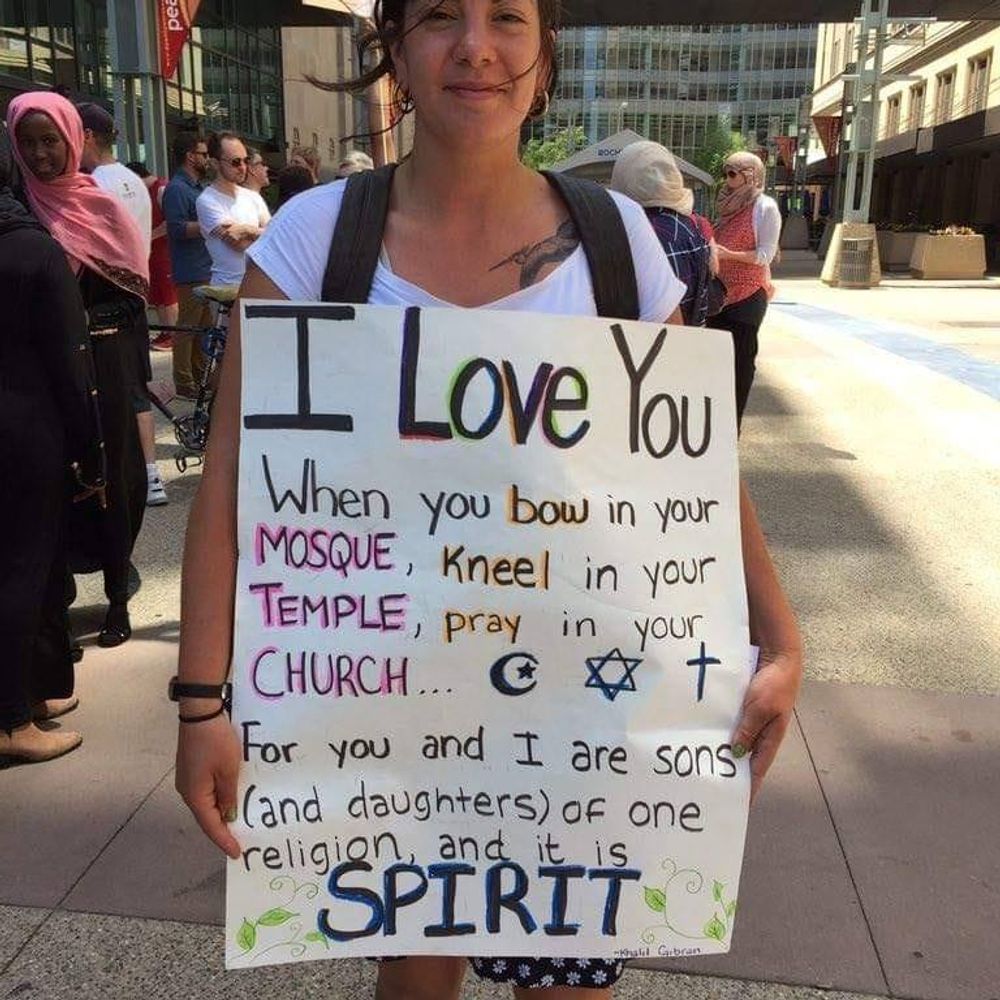 pea
ROCH
I Love You
When you bow in your
MOSQUE, Kneel in your
TEMPLE, pray in your
CHURCH...
For you and I are sons
(and daughters) of one
religion, and it is
SPIRIT
-Khalil Gibran